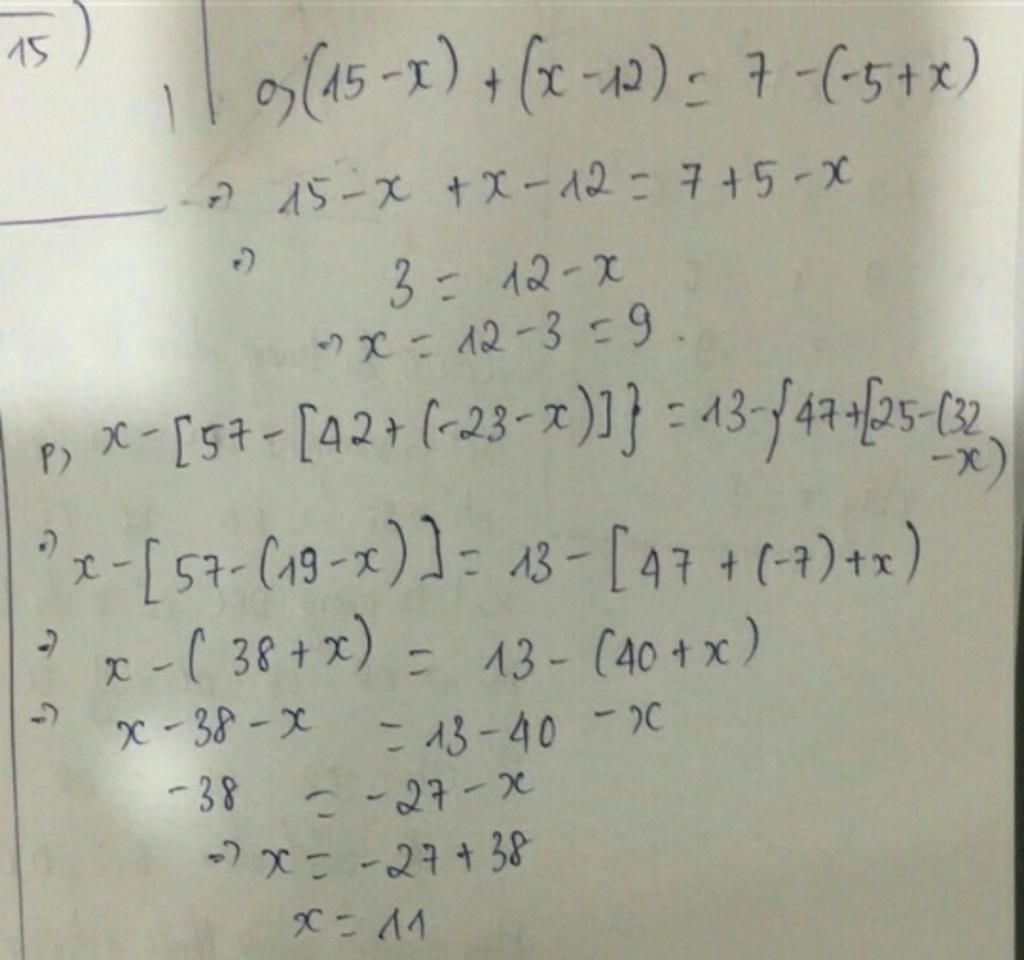 15)
o, (15 - x) + (x - 12) = 7 - (-5 + x)
=> 15 - x + x - 12 = 7 + 5 - x
=> 3 = 12 - x
=> x = 12 - 3 = 9.
p, x - [57 - [42 + (-23 - x)]} = 13 - {47 + [25 - (32
- x)
=> x - [57 - (19 - x)] = 13 - [47 + (-7) + x)
=> x - (38 + x) = 13 - (40 + x)
=> x - 38 - x = 13 - 40 - x
-38 = -27 - x
=> x = -27 + 38
x = 11